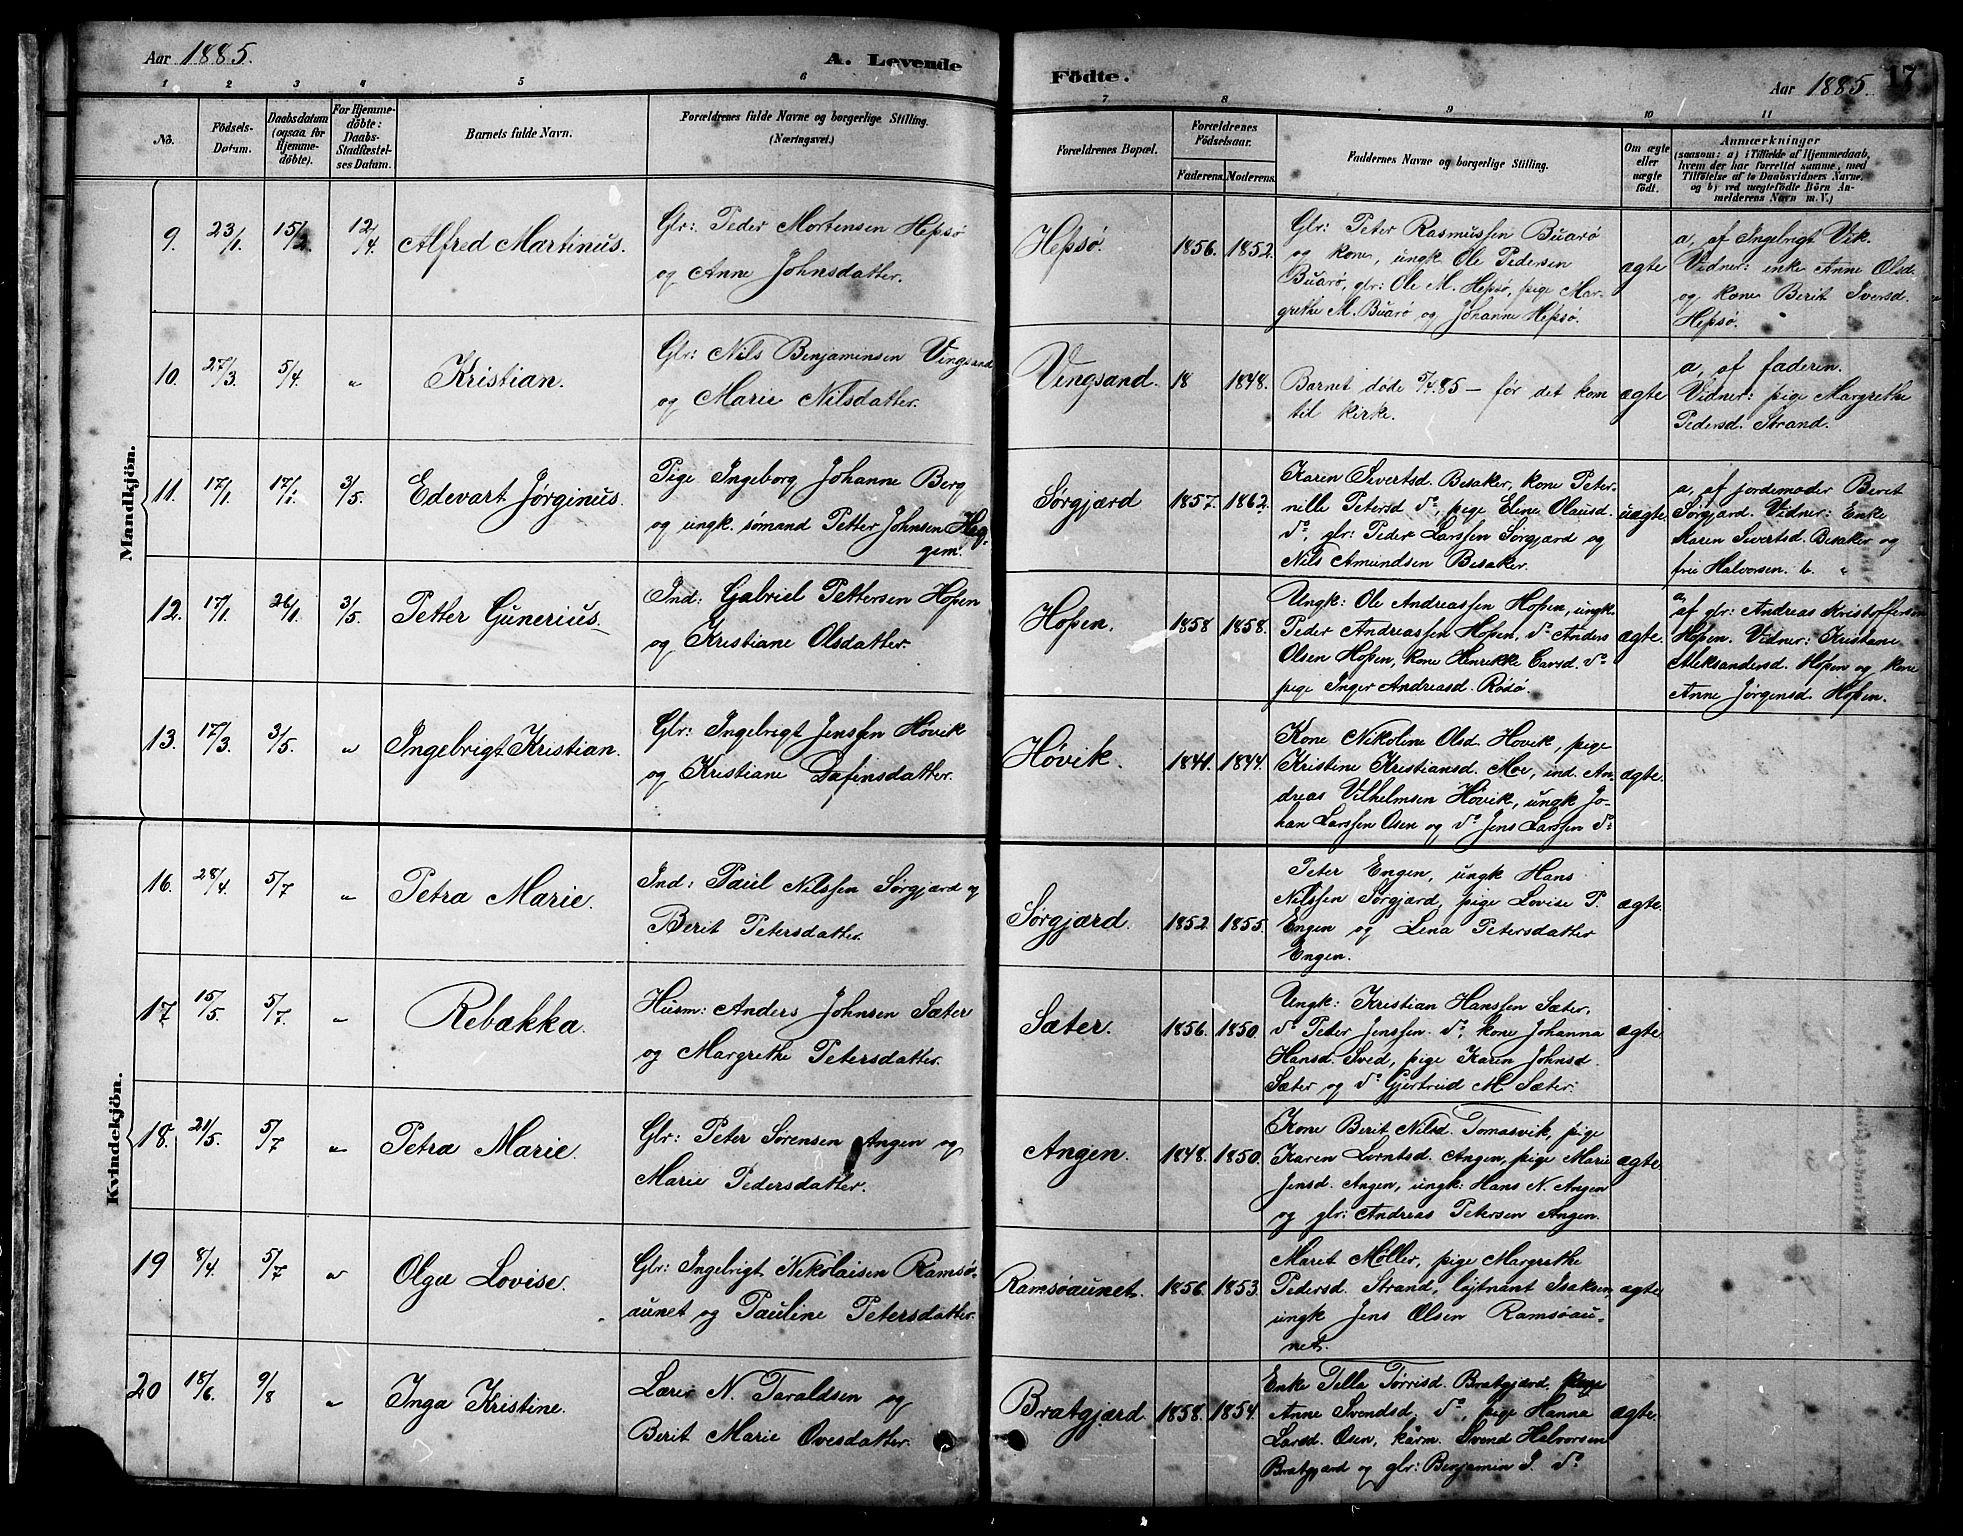 Aar 1885.
A. Levende
Födte.
Aar 1885.
17
1 2 3 4 5 6 7 8 9 10 11
No.
Födsels-
Datum.
Daabsdatum
(ogsaa for
Hjemme-
döbte).
For Hjemme-
döbte:
Daabs-
Stadfæstel-
ses Datum.
Barnets fulde Navn.
Forældrenes fulde Navne og borgerlige Stilling.
(Næringsvei.)
Forældrenes Bopæl.
Forældrenes
Födselsaar.
Faderens. Moderens.
Faddernes Navne og borgerlige Stilling.
Om ægte
eller
uægte
födt.
Anmærkninger
(saasom: a) i Tilfælde af Hjemmedaab,
hvem der har forrettet samme, med
Tilföielse af to Daabsvidners Navne,
og b) ved uægtefödte Börn An-
melderens Navn m. V.)
Mandkjön.
9. 23/1. 15/2 12/4. Alfred Martinus.
Glr: Peder Mortensen Hepsö
og Anne Johnsdatter.
Hepsö. 1856. 1852.
Glr: Peter Rasmussen Buarö
og kone, ungk Ole Pedersen
Buarö, glr: Ole M. Hepsö, pige Mar-
grethe M. Buarö og Johanne Hepsö.
ægte
a, af Ingebrigt Vik.
Vidner: enke Anne Olsd.
og kone Berit Iversd.
Hepsö.
10. 27/3. 5/4. " Kristian.
Glr: Nils Benjaminsen Vingsand
og Marie Nilsdatter.
Vingsand. 18 1848.
Barnet döde 5/4 85 — för det kom
til kirke.
ægte
a, af faderen.
Vidner: pige Margrethe
Pedersd. Strand.
11. 17/1. 17/1. 3/5. Edevart Jørginus.
Pige Ingeborg Johanne Berg
og ungk. sømand Petter Johnsen Heg-
gem.
Sørgjærd 1857. 1862.
Karen Sivertsd. Besaker, kone Peter-
nille Petersd do, pige Eline Olausd.
do, glr: Peder Larssen Sørgjærd og
Nils Amundsen Besaker.
uægte
a, af jordemoder Beret
Sørgjærd. Vidner: Enke
Maren Sivertsd. Besaker og
frue Halvorsen b. "
12. 17/1. 26/1. 3/5. Petter Gunerius.
Ind: Gabriel Pettersen Hopen
og Kristiane Olsdatter.
Hopen. 1858 1858.
Ungk: Ole Andreassen Hopen, ungk.
Peder Andreassen Hopen, do Anders
Olsen Hopen, kone Henrikke do
pige Inger Andreasd. Rödö.
ægte.
a, af glr: Andreas Kristoffersen
Hopen. Vidner: Kristiane
Aleksandersd. Hopen og kone
Anne Jørgensd. Hopen.
13. 17/3. 3/5. " Ingebrigt Kristian.
Glr: Ingebrigt Jenssen Høvik
og Kristiane Dafinsdatter.
Høvik. 1841. 1844.
Kone Nikoline Olsd. Høvik, pige
Kristine Kristiansd. Moe, ind. An-
dreas Vilhelmsen Høvik, ungk Jo-
han Larssen Osen og do Jens Larssen do
ægte.
Kvindekjön.
16. 28/4. 5/7 " Petra Marie.
Ind: Paul Nilssen Sørgjærd og
Berit Petersdatter.
Sørgjærd. 1852. 1855.
Peter Engen, ungk Hans
Nilssen Sørgjærd, pige Lovise P.
Engen og Lena Petersdatter
Engen.
ægte.
17 15/5. 5/7. " Rebækka.
Husm: Anders Johnsen Sæter
og Margrethe Petersdatter.
Sæter. 1856. 1850.
Ungk: Kristian Hanssen Sæter,
do Peder Jenssen do, kone Johanna
Hansd. Sved, pige Karen Johnsd
Sæter og do Gjertrud M. Sæter.
ægte
18. 21/5. 5/7 " Petra Marie.
Glr: Peter Sørensen Angen og
Marie Pedersdatter.
Angen. 1848. 1850.
Kone Berit Nilsd. Tomasvik, pige
Karen Lorntsd. Angen, pige Marie
Jensd. Angen, ungk: Hans N. Angen
og glr: Andreas Petersen Angen.
ægte
19 8/4. 5/7 " Olga Lovise.
Glr: Ingebrigt Nikolaisen Ramsø-
aunet og Pauline Petersdatter.
Ramsøaunet. 1856. 1853.
Maret Møller, pige Margrethe
Pedersd. Strand, løjtnant Isaksen
ungk Jens Olsen Ramsøau-
net.
ægte
20 18/6. 9/8 " Inga Kristine.
Lærer N. Taraldsen og
Berit Marie Ovesdatter.
Bratgjærd 1858. 1854.
Enke Tella Tørrisd. Bratgjærd, pige
Anne Svendsd. do, pige Hanna
Larsd. Osen, kårm. Svend Halvorsen
Bratgjærd og glr: Benjamin J. do
ægte.